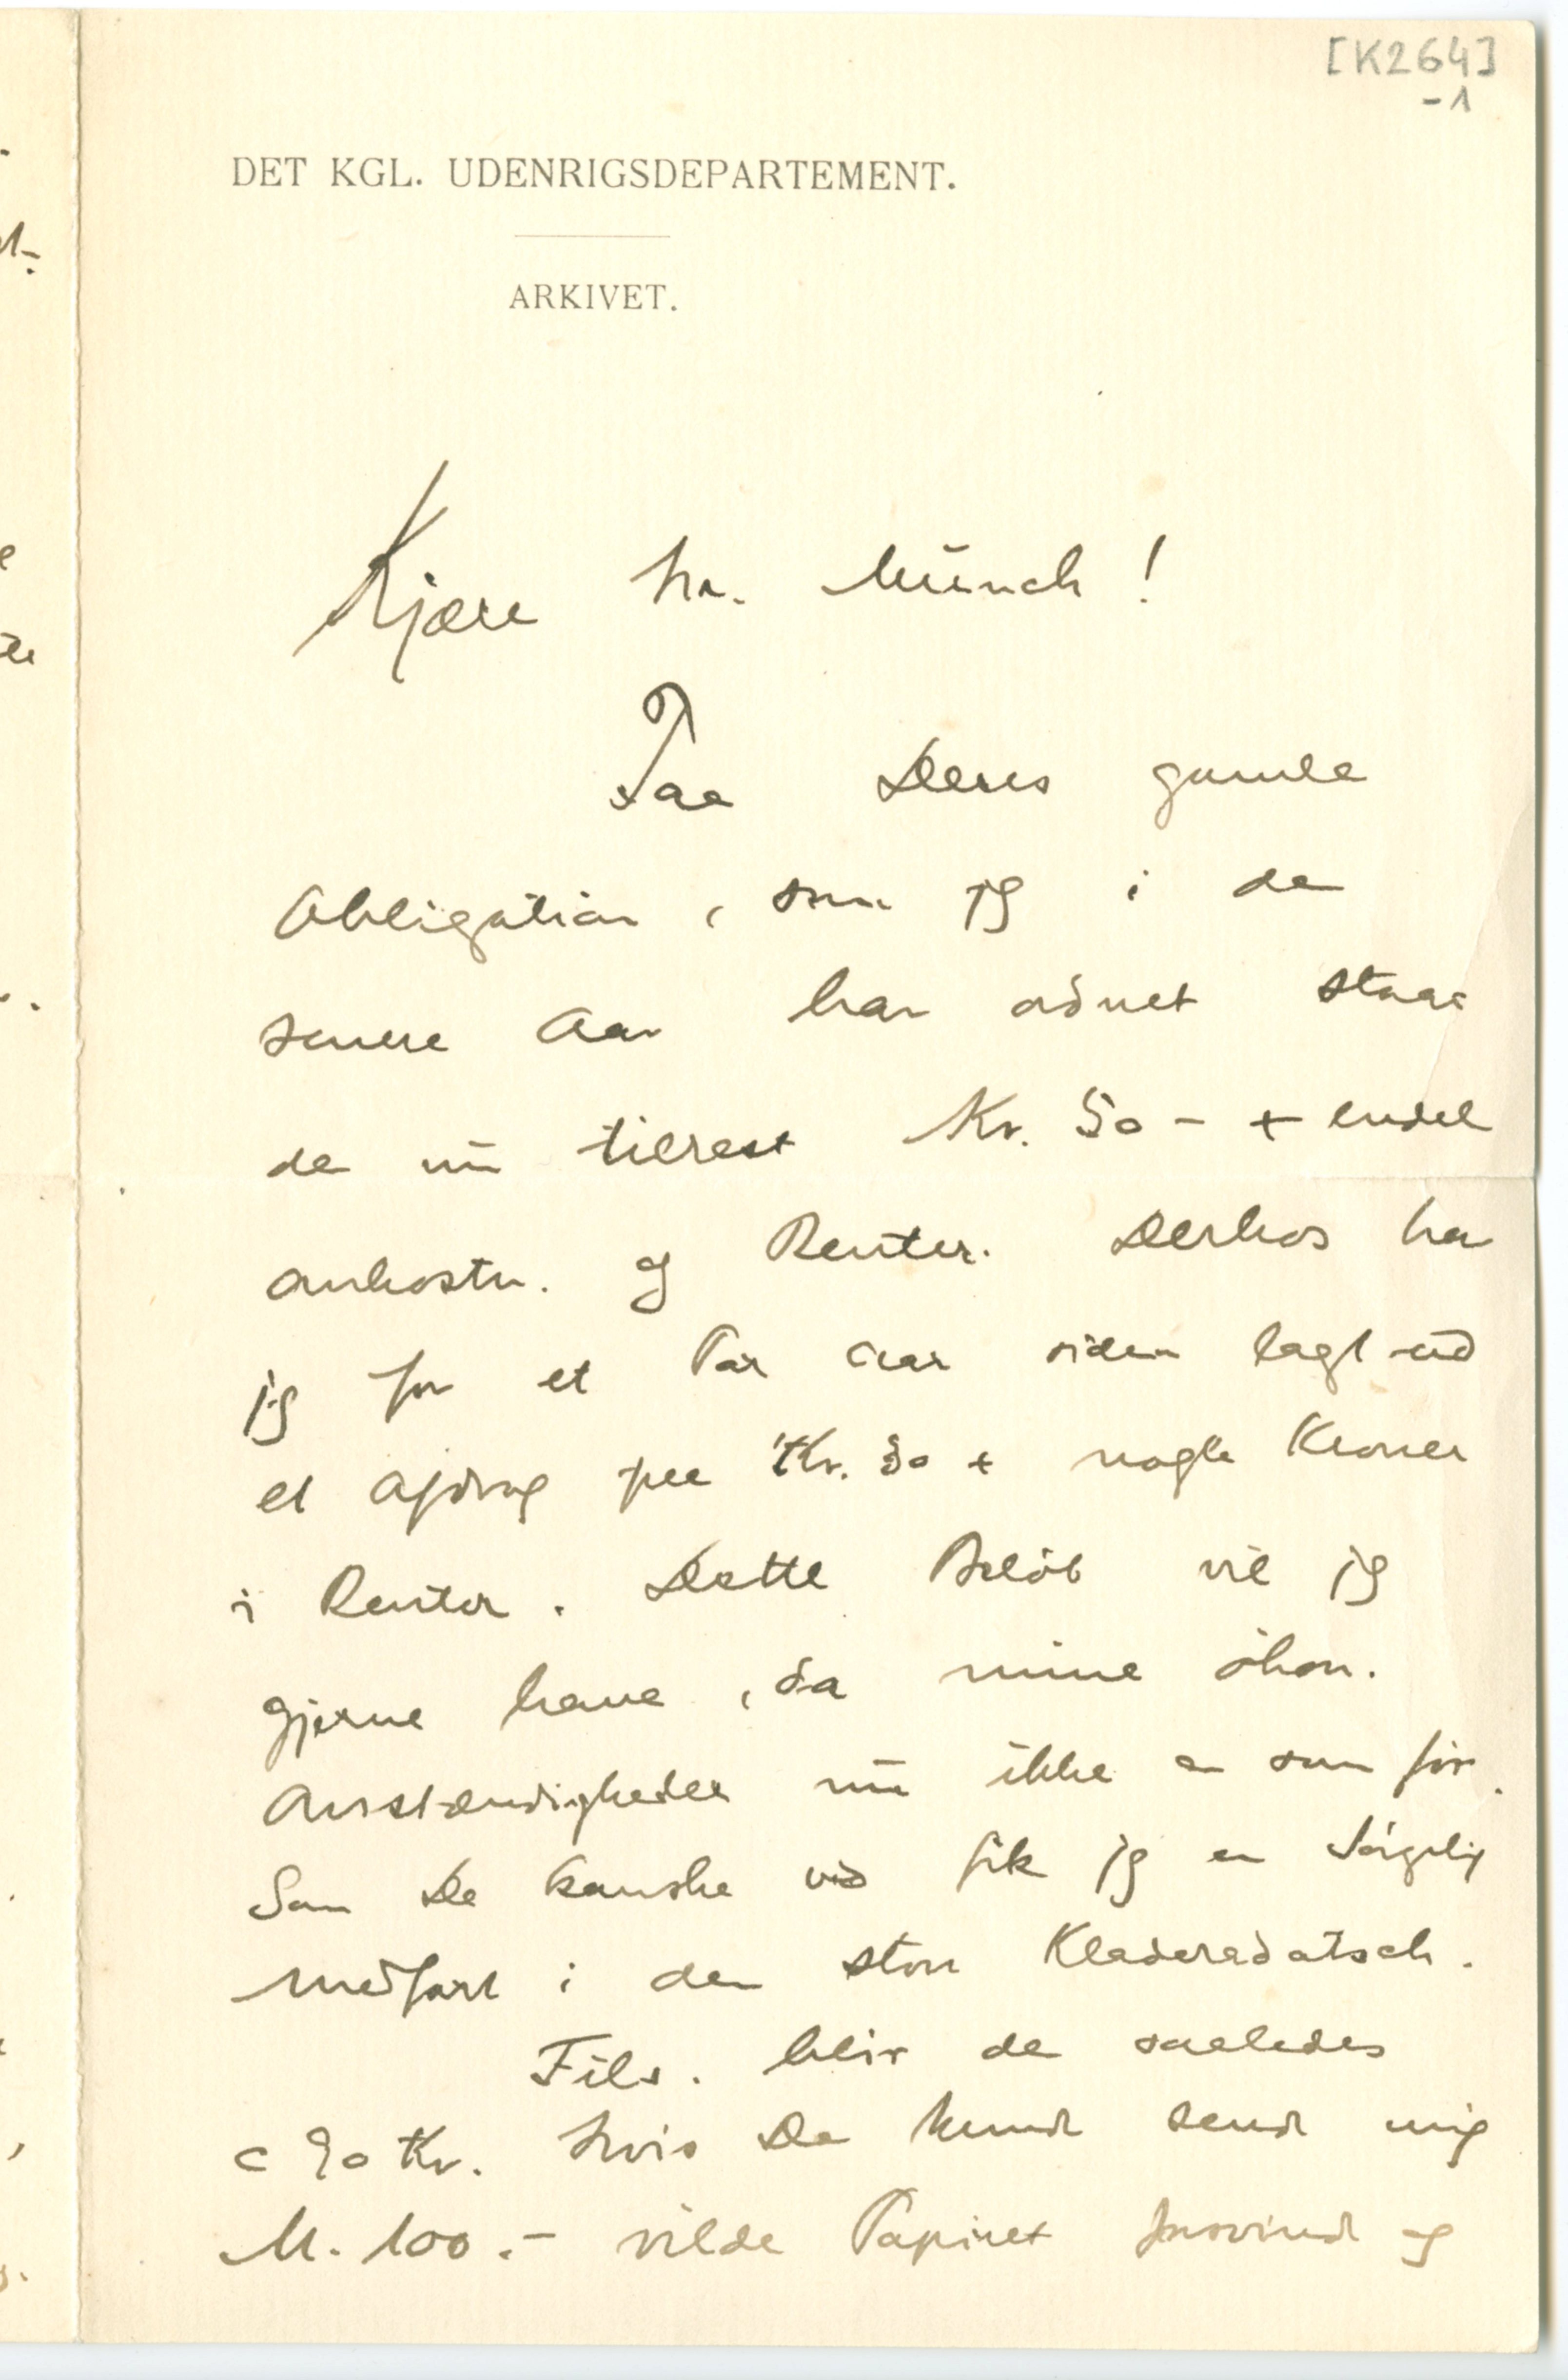 [K264]
-1
DET KGL. UDENRIGSDEPARTEMENT.
ARKIVET.
Kjære Hr. Münch!
Paa Deres gamle
Obligation, som jeg i de
senere Aar har ordnet staar
de nu tilrest Kr. 50 - + endel
omkostn. og Renter. Derhos har
jeg for et Par Aar siden lagt ud
et Afdrag paa Kr. 30 + nogle Kroner
i Renter. Dette Beløb vil jeg
gjerne have, da mine økon.
Omstændigheder nu ikke er som før.
Som De kanske ved fik jeg en sørgelig
medfart i den store Kladeradatsch.
Tils. blir de saaledes
c 90 Kr. Hvis De kunde sende mig
M. 100.- vilde Papiret forsvinde og